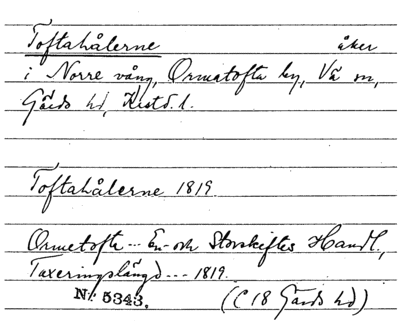 Toftahålerne åker
i Norre vång, Ormatofta by, Vä sn,
Gärds hd, Krist.l.
Toftahålerne 1819
Ormetofte --- En- och Storskiftes Handl.,
Taxeringslängd --- 1819.
Nr. 5343. (C 18 Gärds hd)